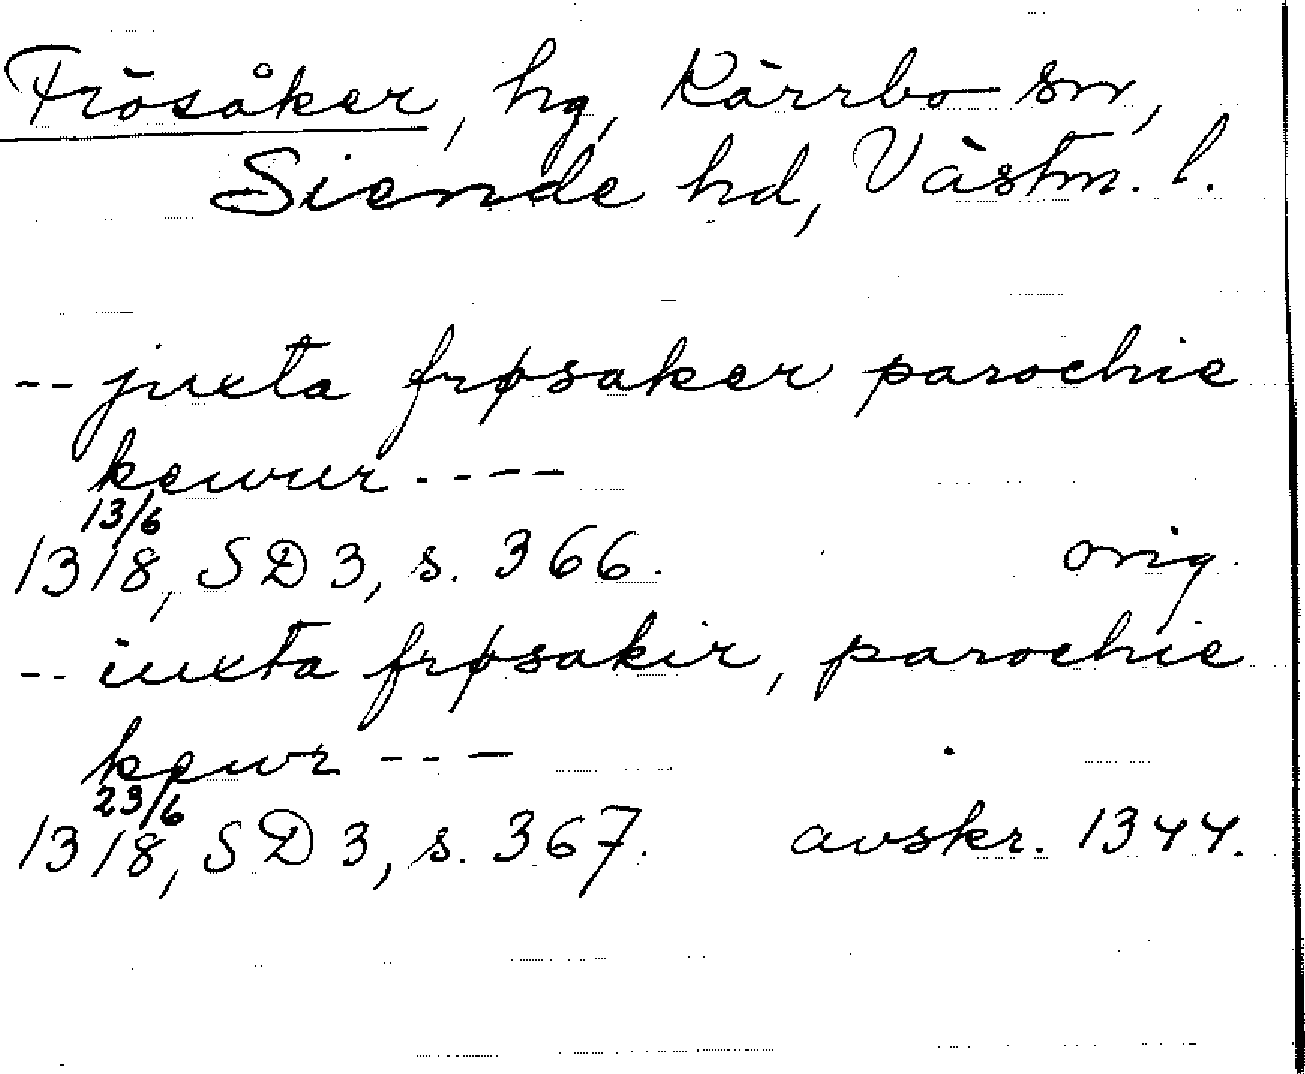 Frösåker, hg, Kärrbo sn,
Siende hd, Västm. l.
-- juxta frøsaker parochie
kewur ----
13/6
1318, SD 3, s. 366. orig.
-- iuxta frøsakir, parochie
kewr ---
23/6
1318, SD 3, s. 367. avskr. 1344.